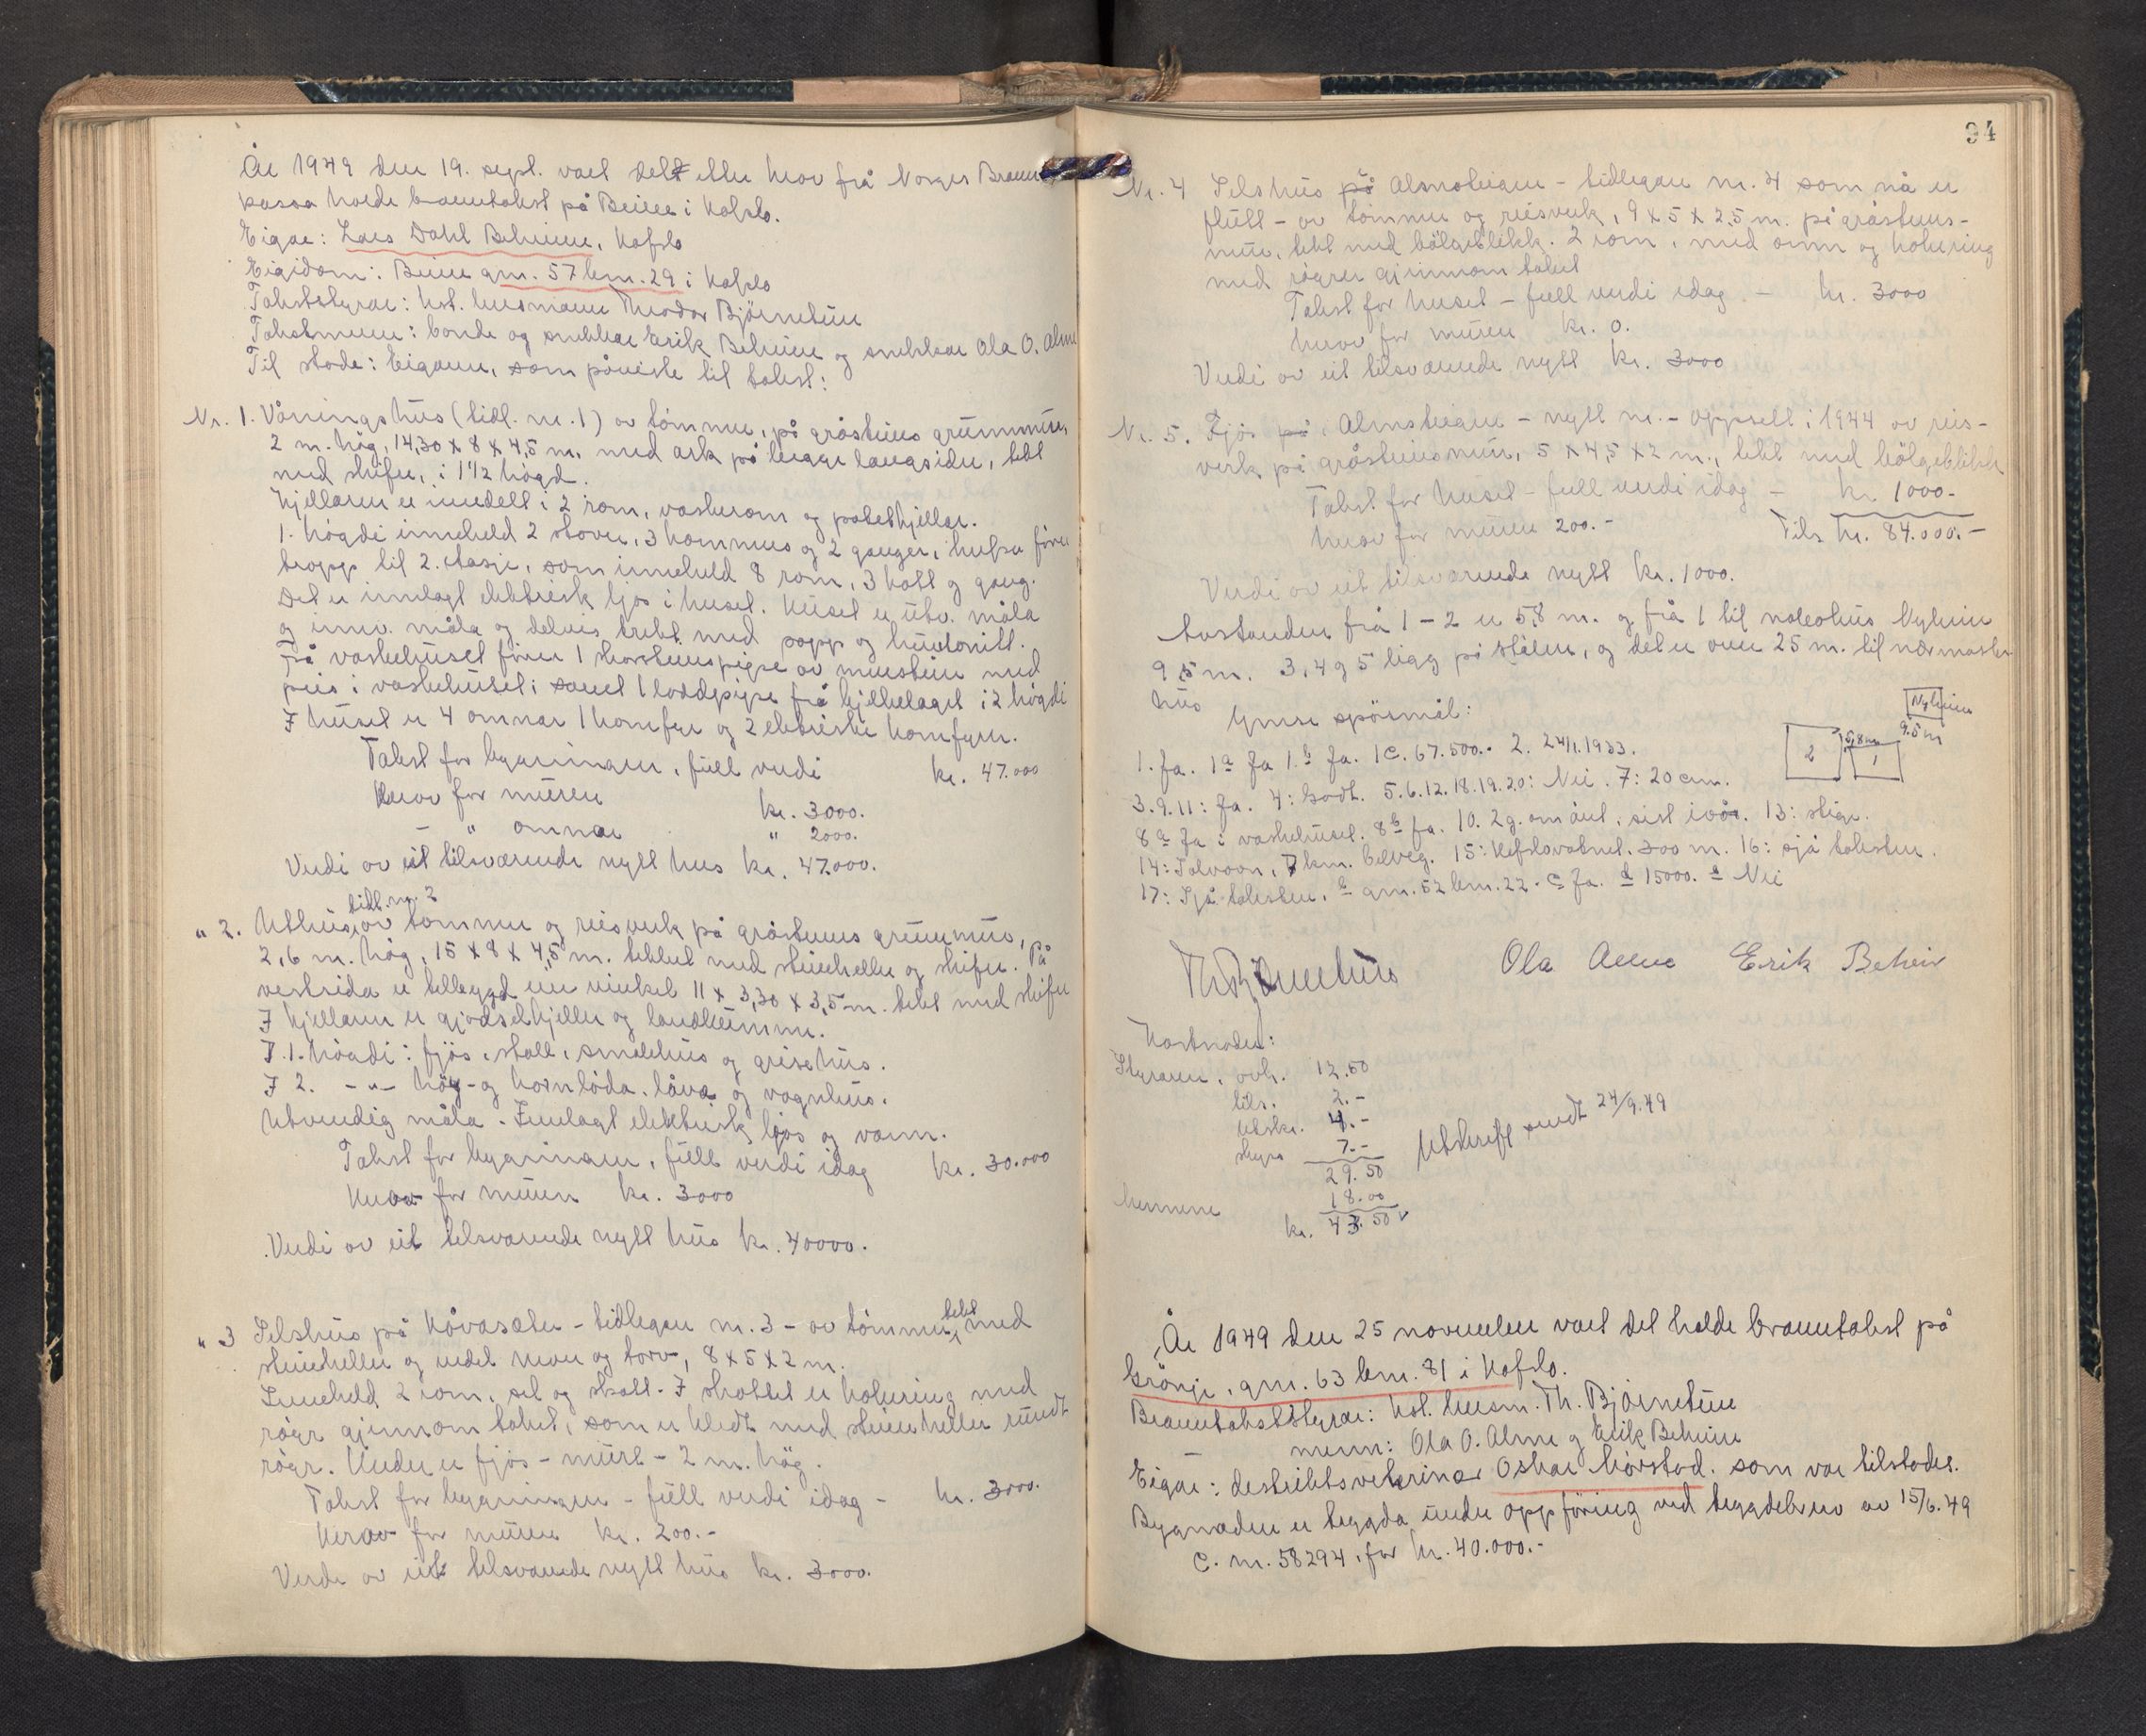 År 1949 den 19. sept. vart det etter krav frå Norges Brann
kassa halde branntakst på Beheim i Hafslo.
Eigar: Lars Dahl Beheim, Hafslo
Eigidom: Beheim gnr. 57 bnr. 29 i Hafslo
Takststyrar: kst. lensmann Theodor Bjørnetun
Takstmenn: bonde og snikkar Erik Beheim og snikkar Ola O. Alme
Til stade: Eigaren, som påviste til takst:
Nr. 1. Våningshus (tidl. nr. 1) av tømmer, på gråsteins grunnmur,
2 m. høg, 14,30 x 8 x 4,5 m. med ark på begge langsider, tekt
med skifer, i 1 1/2 høgd.
Kjellaren er inndelt i 2 rom, vaskerom og potetkjellar.
1. høgdi inneheld 2 stover, 3 kammers og 2 ganger, trapp fører
opp til 2. etasje, som inneheld 8 rom, 3 kott og gang.
Det er innlagt elektrisk ljos i huset. Huset er utv. måla
og innv. måla og delvis trekt med papp og huntonitt.
På vaskehuset fører 1 skorsteinspipe av murstein med
peis i vaskehuset; samt 1 loddpipe frå bjelkelaget i 2 høgdi
I huset er 4 omnar 1 komfyr og 2 elektriske komfyrer.
Takst for bygningen, full verdi kr. 47.000
Herav for muren kr. 3000.
– " omnar " 2000.
Verdi av eit tilsvarende nytt hus kr. 47.000.
tidl. nr. 2
" 2. Uthus av tømmer og reisverk på gråsteins grunnmur,
2,6 m. høg, 15 x 8 x 4,5 m. tekket med steinheller og skifer. På
vestsida er tilbygd ein vinkel 11 x 3,30 x 3,5 m. tekt med skifer
I kjellaren er gjødselkjeller og landkumme.
I 1. høgdi: fjøs, stall, smalehus og grisehus.
I 2. –"– høy- og kornløda, låve og vognhus.
Utvendig måla. Innlagt elektrisk ljos og vann.
Takst for bygningen, full verdi idag kr. 30.000
Herav for muren kr. 3000
Verdi av eit tilsvarende nytt hus kr. 40000.
" 3 Selshus på Håvasæter – tidlegare nr. 3 – av tømmer, tekt med
steinheller og endel never og torv, 8 x 5 x 2 m.
Inneheld 2 rom, sel og skott. I skottet er kokering med
røyr gjennom taket, som er kledt med steinheller rundt
røyr. Under er fjøs – murt – 2 m. høg.
Takst for bygningen – full verdi idag – kr. 3000.
Herav for muren kr. 200.–
Verdi av eit tilsvarende nytt hus kr. 3000.
94
Nr. 4 Selshus på Almsteigen – tidlegare nr. 4 som nå er
flutt – av tømmer og reisverk, 9 x 5 x 2,5 m. på gråsteins-
mur, tekt med bølgeblikk. 2 rom, med omn og kokering
med røyrer gjennom taket
Takst for huset – full verdi idag – kr. 3000
herav for muren kr. 0.
Verdi av eit tilsvarende nytt kr. 3000
Nr. 5. Fjøs på Almsteigen – nytt nr. – oppsett i 1944 av reis-
verk på gråsteinsmur, 5 x 4,5 x 2 m., tekt med bølgeblikk
Takst for huset – full verdi idag – kr. 1000.–
herav for muren 200.– Tils kr. 84.000.–
Verdi av eit tilsvarende nytt kr. 1000.
Avstanden frå 1 – 2 er 5,8 m. og frå 1 til nabohus Nyheim
9,5 m. 3, 4 og 5 ligg på stølen, og det er over 25 m. til nærmaste
hus
Ymse spørsmål:
1. Ja. 1a Ja 1.b Ja. 1c. 67.500.– 2. 24/1.1933.
3.9.11: Ja. 4: Godt. 5.6.12.18.19.20: Nei. 7: 20 cm.
8a Ja i vaskehuset. 8b Ja. 10. 2 g. om året, sist i vår. 13: stige.
14: Solvorn, 7 km. bilveg. 15: Hafslovatnet. 300 m. 16: sjå taksten.
17: Sjå taksten. b gnr. 52 bnr. 22. c Ja. d 15000. e Nei
Nyheim
9.5 m
5,8 m
2
1
Th Bjørnetun Ola Alme Erik Beheim
Kostnader:
Styraren, ovh. 12.50
tils. 2.–
Utskr. 4.–
skyss 7.–
29.50
mennene 18.00
kr. 43.50
Utskrift sendt 24/9.49
År 1949 den 25 november vart det halde branntakst på
Grønje, gnr. 63 bnr. 81 i Hafslo.
Branntakststyrar: kst. lensm. Th. Bjørnetun
– menn: Ola O. Alme og Erik Beheim
Eigar: distriktsveterinær Oskar Mørstad, som var tilstades.
Bygnaden er trygda under oppføring ved trygdebrev av 15/6.49
C. nr. 58294, for kr. 40.000.–